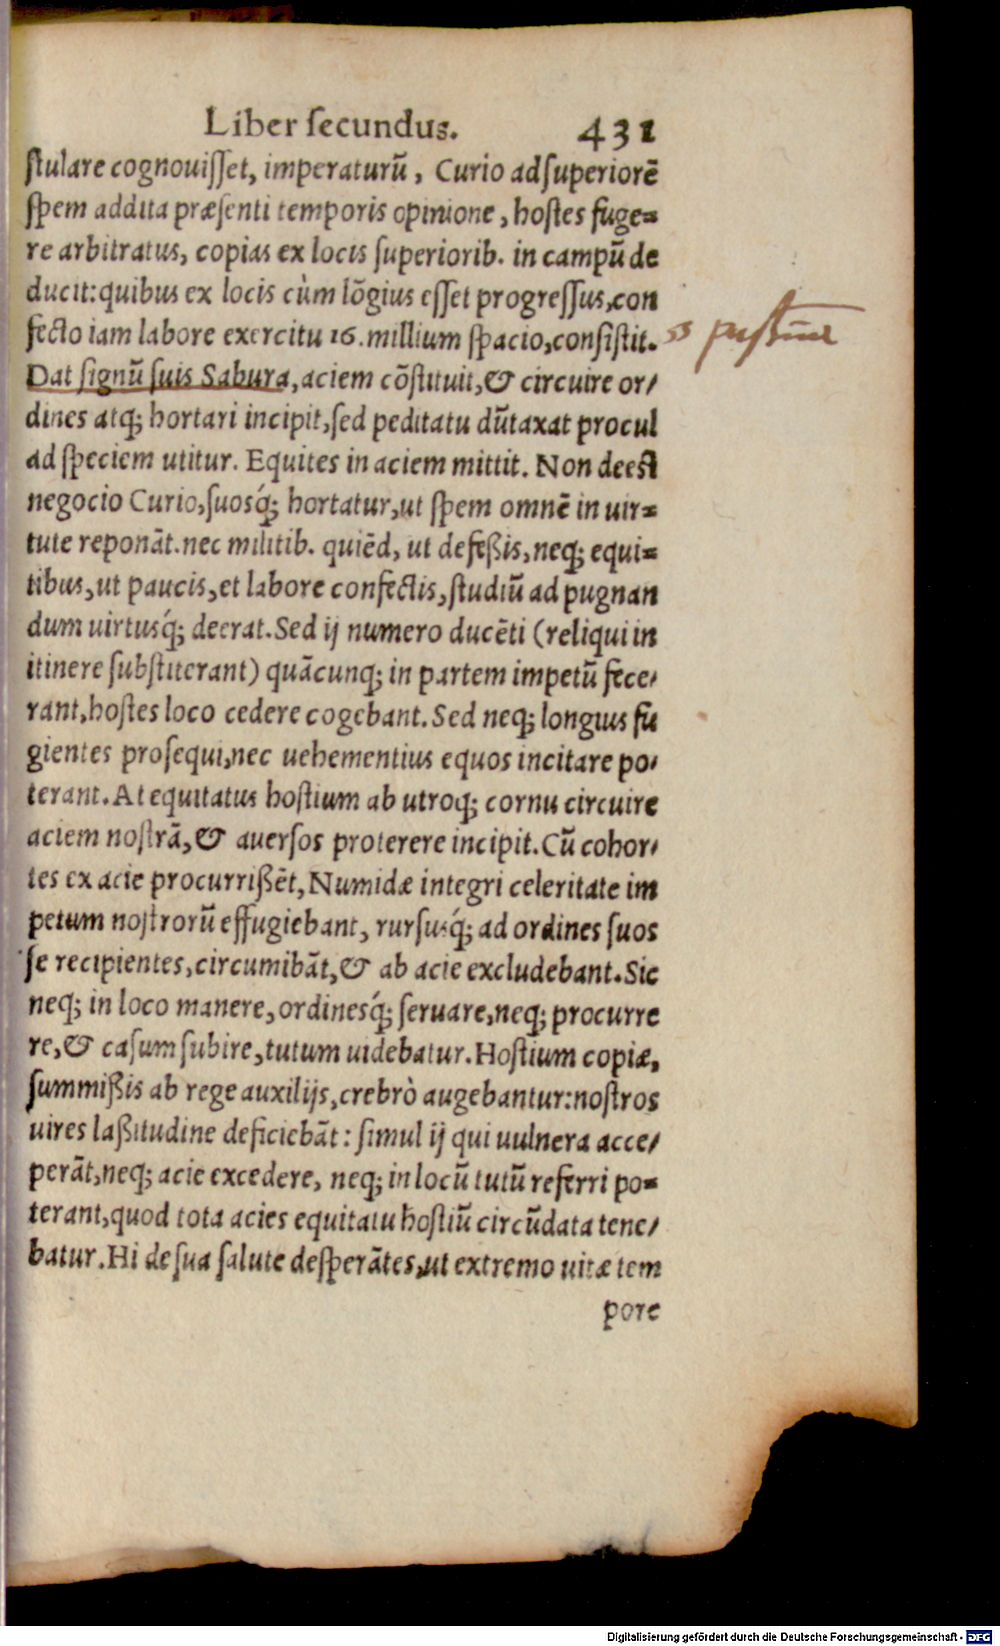 Liber ſecundus. 431
ſtulare cognouiſſet, imperaturū, Curio ad ſuperiorē
ſpem addita præſenti temporis opinione, hoſtes fuge=
re arbitratus, copias ex locis ſuperiorib. in campū de
ducit: quibus ex locis cùm lōgius eſſet progreſſus, con
fecto iam labore exercitu 16. millium ſpacio, conſiſtit.
Dat ſignū ſuis Sabura, aciem cōſtituit, & circuire or/
dines atq; hortari incipit, ſed peditatu dūtaxat procul
ad ſpeciem utitur. Equites in aciem mittit. Non deeſt
negocio Curio, ſuosq́; hortatur, ut ſpem omnē in uir=
tute reponāt. nec militib. quiēd, ut defeßis, neq; equi=
tibus, ut paucis, et labore confectis, ſtudiū ad pugnan
dum uirtusq́; deerat. Sed ij numero ducēti (reliqui in
itinere ſubſtiterant) quācunq; in partem impetū fece/
rant, hoſtes loco cedere cogebant. Sed neq; longius fu
gientes proſequi, nec uehementius equos incitare po/
terant. At equitatus hoſtium ab utroq; cornu circuire
aciem noſtrā, & auerſos proterere incipit. Cū cohor/
tes ex acie procurrißēt, Numidæ integri celeritate im
petum noſtrorū effugiebant, rurſusq́; ad ordines ſuos
ſe recipientes, circumibāt, & ab acie excludebant. Sic
neq; in loco manere, ordinesq́; ſeruare, neq; procurre
re, & caſum ſubire, tutum uidebatur. Hoſtium copiæ,
ſummißis ab rege auxilijs, crebrò augebantur: noſtros
uires laßitudine deficiebāt: ſimul ij qui uulnera acce/
perāt, neq; acie excedere, neq; in locū tutū referri po=
terant, quod tota acies equitatu hoſtiū circūdata tene/
batur. Hi de ſua ſalute deſperātes, ut extremo uitæ tem
pore
Digitalisierung gefördert durch die Deutsche Forschungsgemeinschaft - DFG